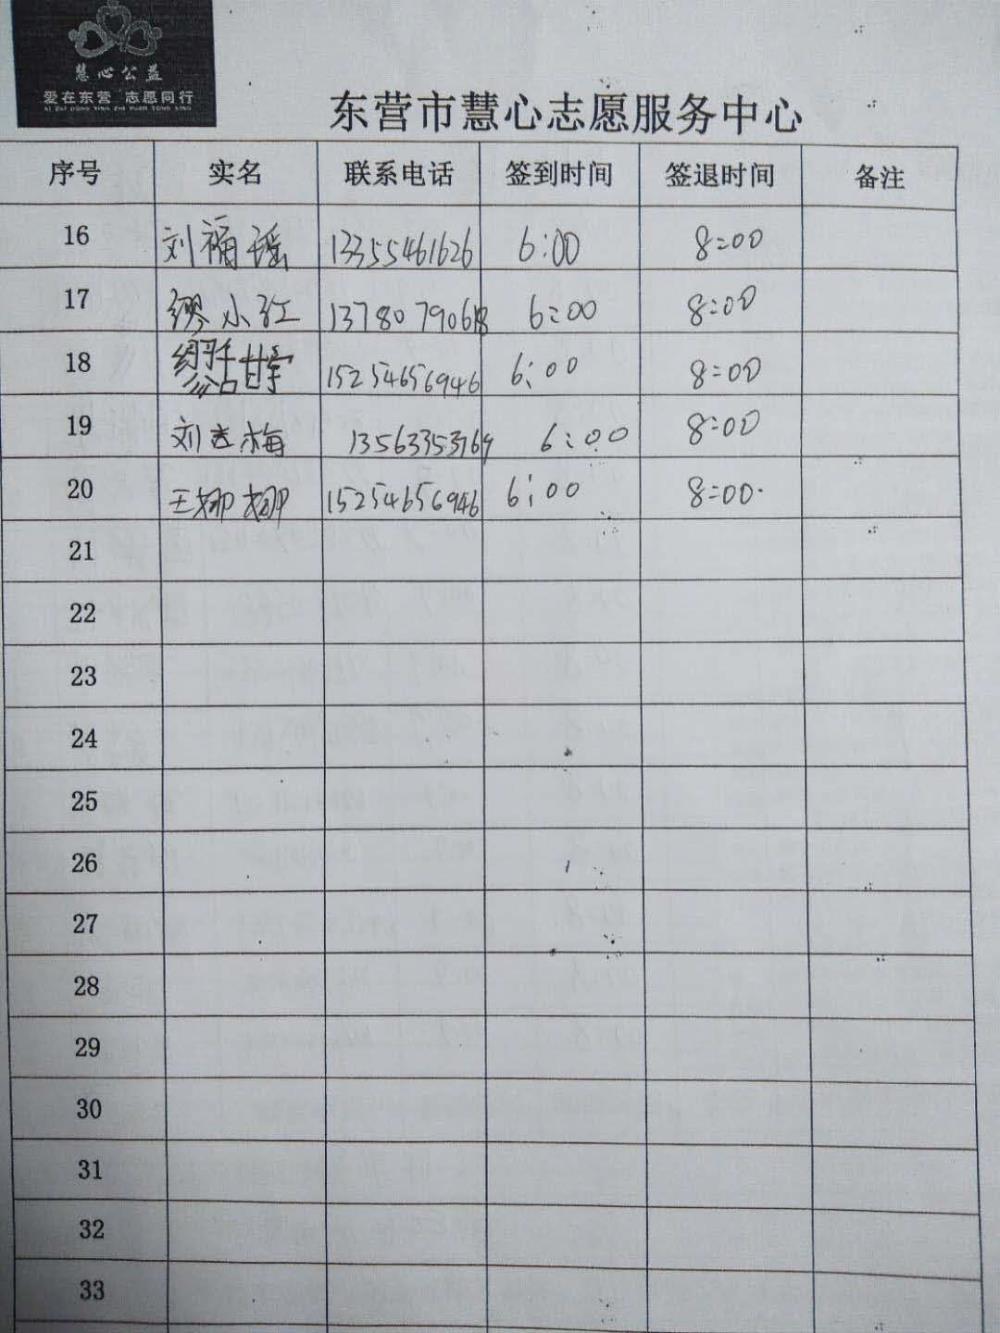 慧心公益
爱在东营 志愿同行
东营市慧心志愿服务中心
序号 实名 联系电话 签到时间 签退时间 备注
16 刘福瑶 13355461626 6:00 8:00
17 缪小红 13780790618 6:00 8:00
18 15254656946 6:00 8:00
19 刘志梅 13563353769 6:00 8:00
20 王娜娜 15254656946 6:00 8:00
21
22
23
24
25
26
27
28
29
30
31
32
33